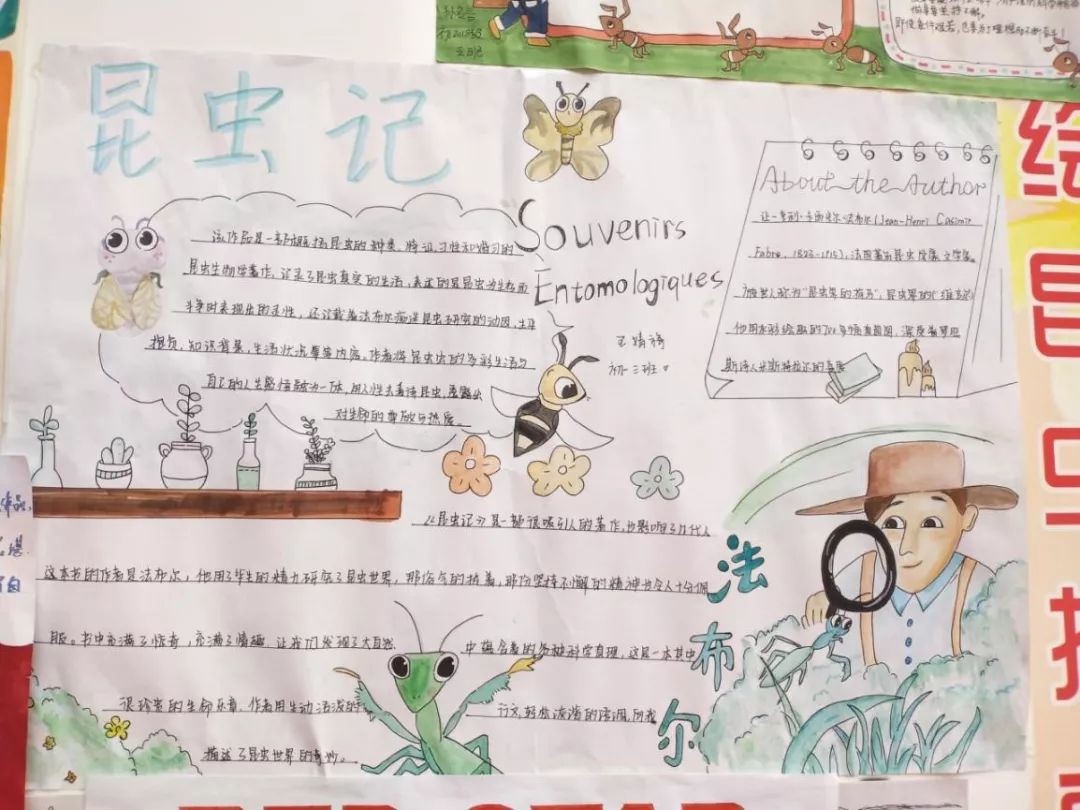 昆虫记
该作品是一部概括昆虫的种类、特征、习性和婚习的
昆虫生物学著作,记录了昆虫真实的生活,表述的是昆虫为生存而
斗争时表现出的灵性,还记载着法布尔痴迷昆虫研究的动因,生平
抱负,知识背景,生活状况等等内容。作者将昆虫的多彩生活与
自己的人生感悟融为一体,用人性去看待昆虫,
对生命的尊敬与热爱。
Souvenirs
Entomologiques
初三班
About the Author
让-亨利·卡西米尔·法布尔(Jean-Henri Casimir
Fabre, 1823-1915),法国著名昆虫学家,文学家。
被世人称为“昆虫界的荷马”,昆虫界的“维吉尔”
他用水彩绘绘的700多幅真菌图,深受普罗旺
斯诗人米斯特拉尔的喜爱
《昆虫记》是一部很吸引人的著作,也影响了几代人
这本书的作者是法布尔,他用了毕生的精力研究了昆虫世界,那俗气的执着,那份坚持不懈的精神也令人十分佩
服。书中充满了惊奇,充满了情趣,让我们发现了大自然
中蕴含着的各种科学真理,这是一本其中
很珍贵的生命乐章,作者用生动活泼的
行文,轻松诙谐的语调,向我
描述了昆虫世界的奇妙。
法布尔